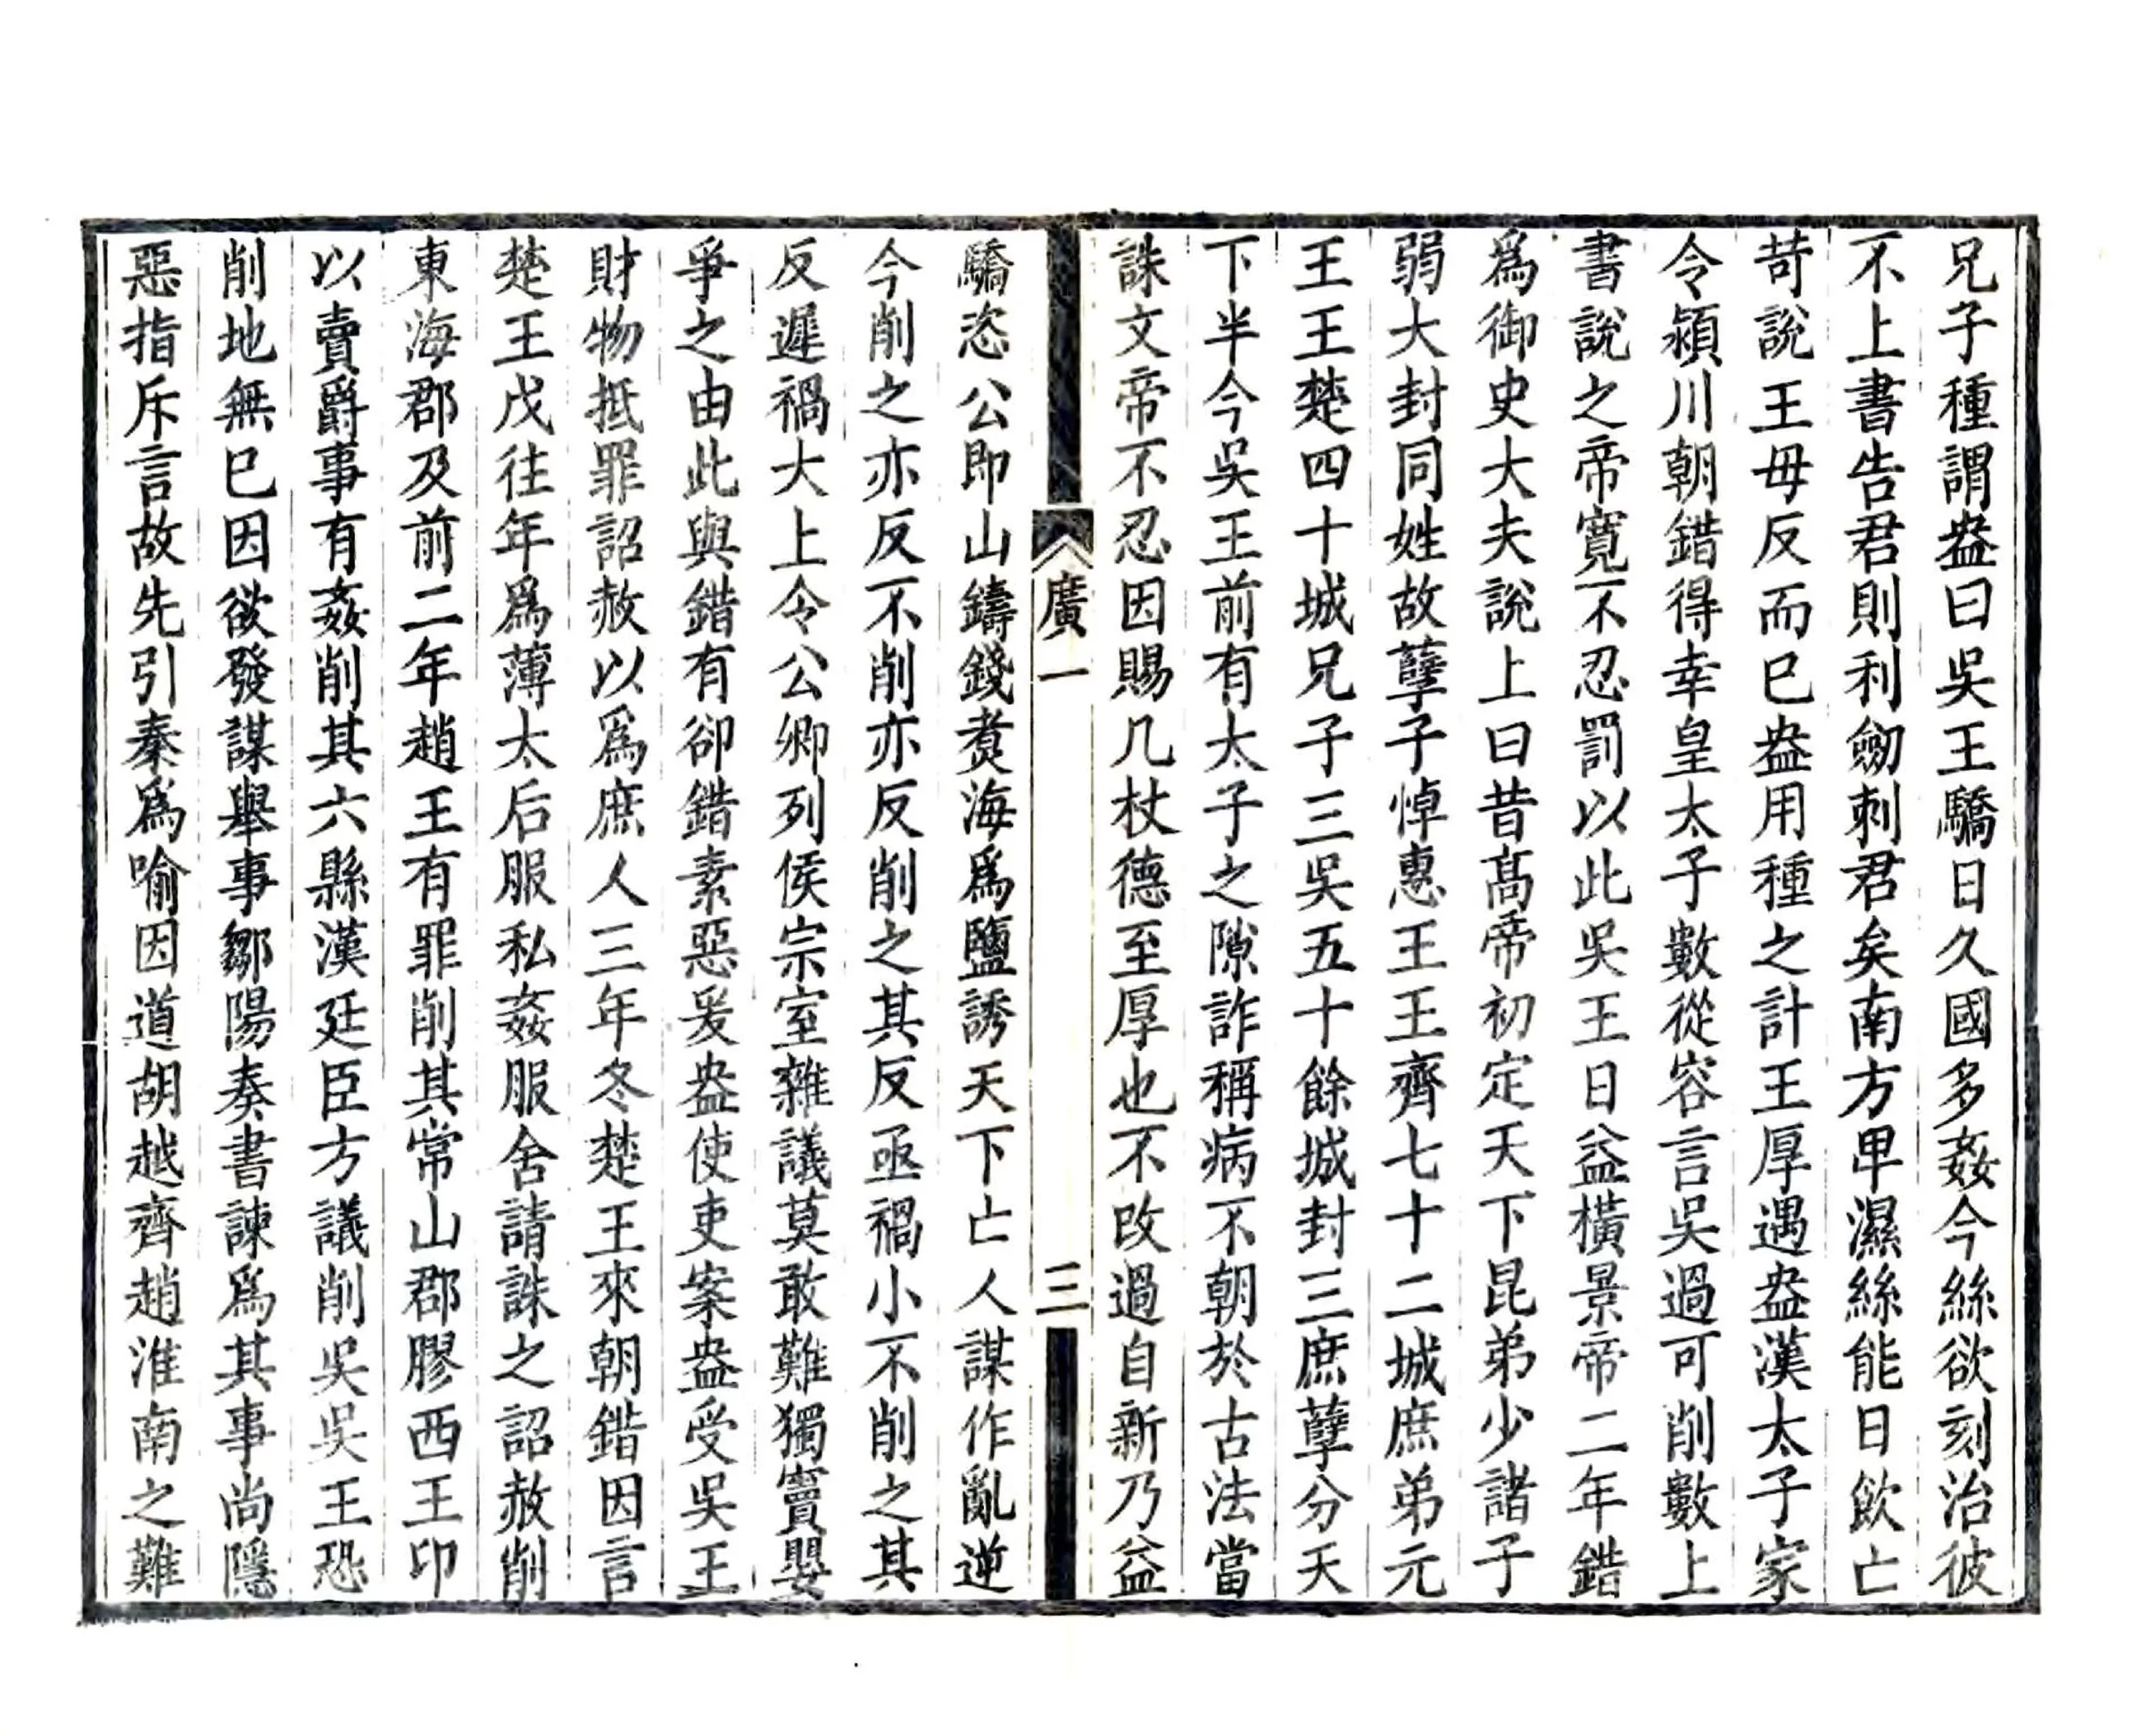 兄子種謂盎曰吳王驕日久國多姦今絲欲刻治彼
不上書告君則利劒刺君矣南方卑濕絲能日飲亡
苛說王毋反而已盎用種之計王厚遇盎漢太子家
令潁川朝錯得幸皇太子數從容言吳過可削數上
書說之帝寬不忍罰以此吳王日益橫景帝二年錯
爲御史大夫說上曰昔髙帝初定天下昆弟少諸子
弱大封同姓故孽子悼惠王王齊七十二城庶弟元
王王楚四十城兄子三吳五十餘城封三庶孽分天
下半今吳王前有太子之隙詐稱病不朝於古法當
誅文帝不忍因賜几杖德至厚也不改過自新乃益
廣一
三
驕恣公即山鑄錢煑海爲鹽誘天下亡人謀作亂逆
今削之亦反不削亦反削之其反亟禍小不削之其
反遲禍大上令公卿列侯宗室雜議莫敢難獨竇嬰
爭之由此與錯有卻錯素惡爰盎使吏案盎受吳王
財物抵罪詔赦以爲庶人三年冬楚王來朝錯因言
楚王戊往年爲薄太后服私姦服舍請誅之詔赦削
東海郡及前二年趙王有罪削其常山郡膠西王卬
以賣爵事有姦削其六縣漢廷臣方議削吳吳王恐
削地無已因欲發謀舉事鄒陽奏書諫爲其事尚隱
惡指斥言故先引秦爲喻因道胡越齊趙淮南之難